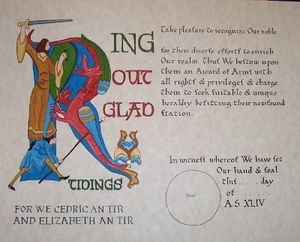 RING
OUT
GLAD
TIDINGS
FOR WE CEDRIC AN TIR
AND ELIZABETH AN TIR
Take pleasure to recognize Our noble
for their diverse efforts to enrich
Our realm Thus We bestow upon
them an Award of Arms with
all rights & privileges & charge
them to seek suitable & unique
heraldry befitting their newfound
station.
In witness whereof We have set
Our hand & seal
this ..... day
of ........
A.S. XLIV
Seal